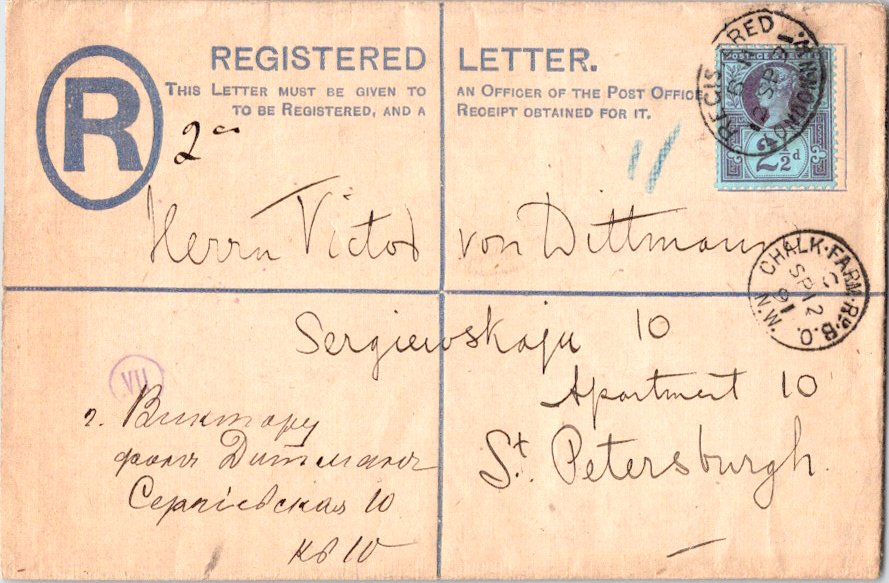 R
REGISTERED LETTER.
THIS LETTER MUST BE GIVEN TO AN OFFICER OF THE POST OFFICE
TO BE REGISTERED, AND A RECEIPT OBTAINED FOR IT.
POSTAGE &
2½d
REGISTERED LONDON
SP 12 91
CHALK·FARM·RD B.O. N.W.
C
SP 12
91
11
Herrn Victor von Dittmann
Sergiewskaja 10
Apartment 10
St. Petersburgh.
VII
г. Виктору
фонъ Дитманъ
Сергiевская 10
кв 10